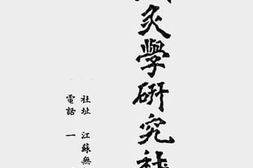 灸學研究社
社址 江蘇無
電話 一